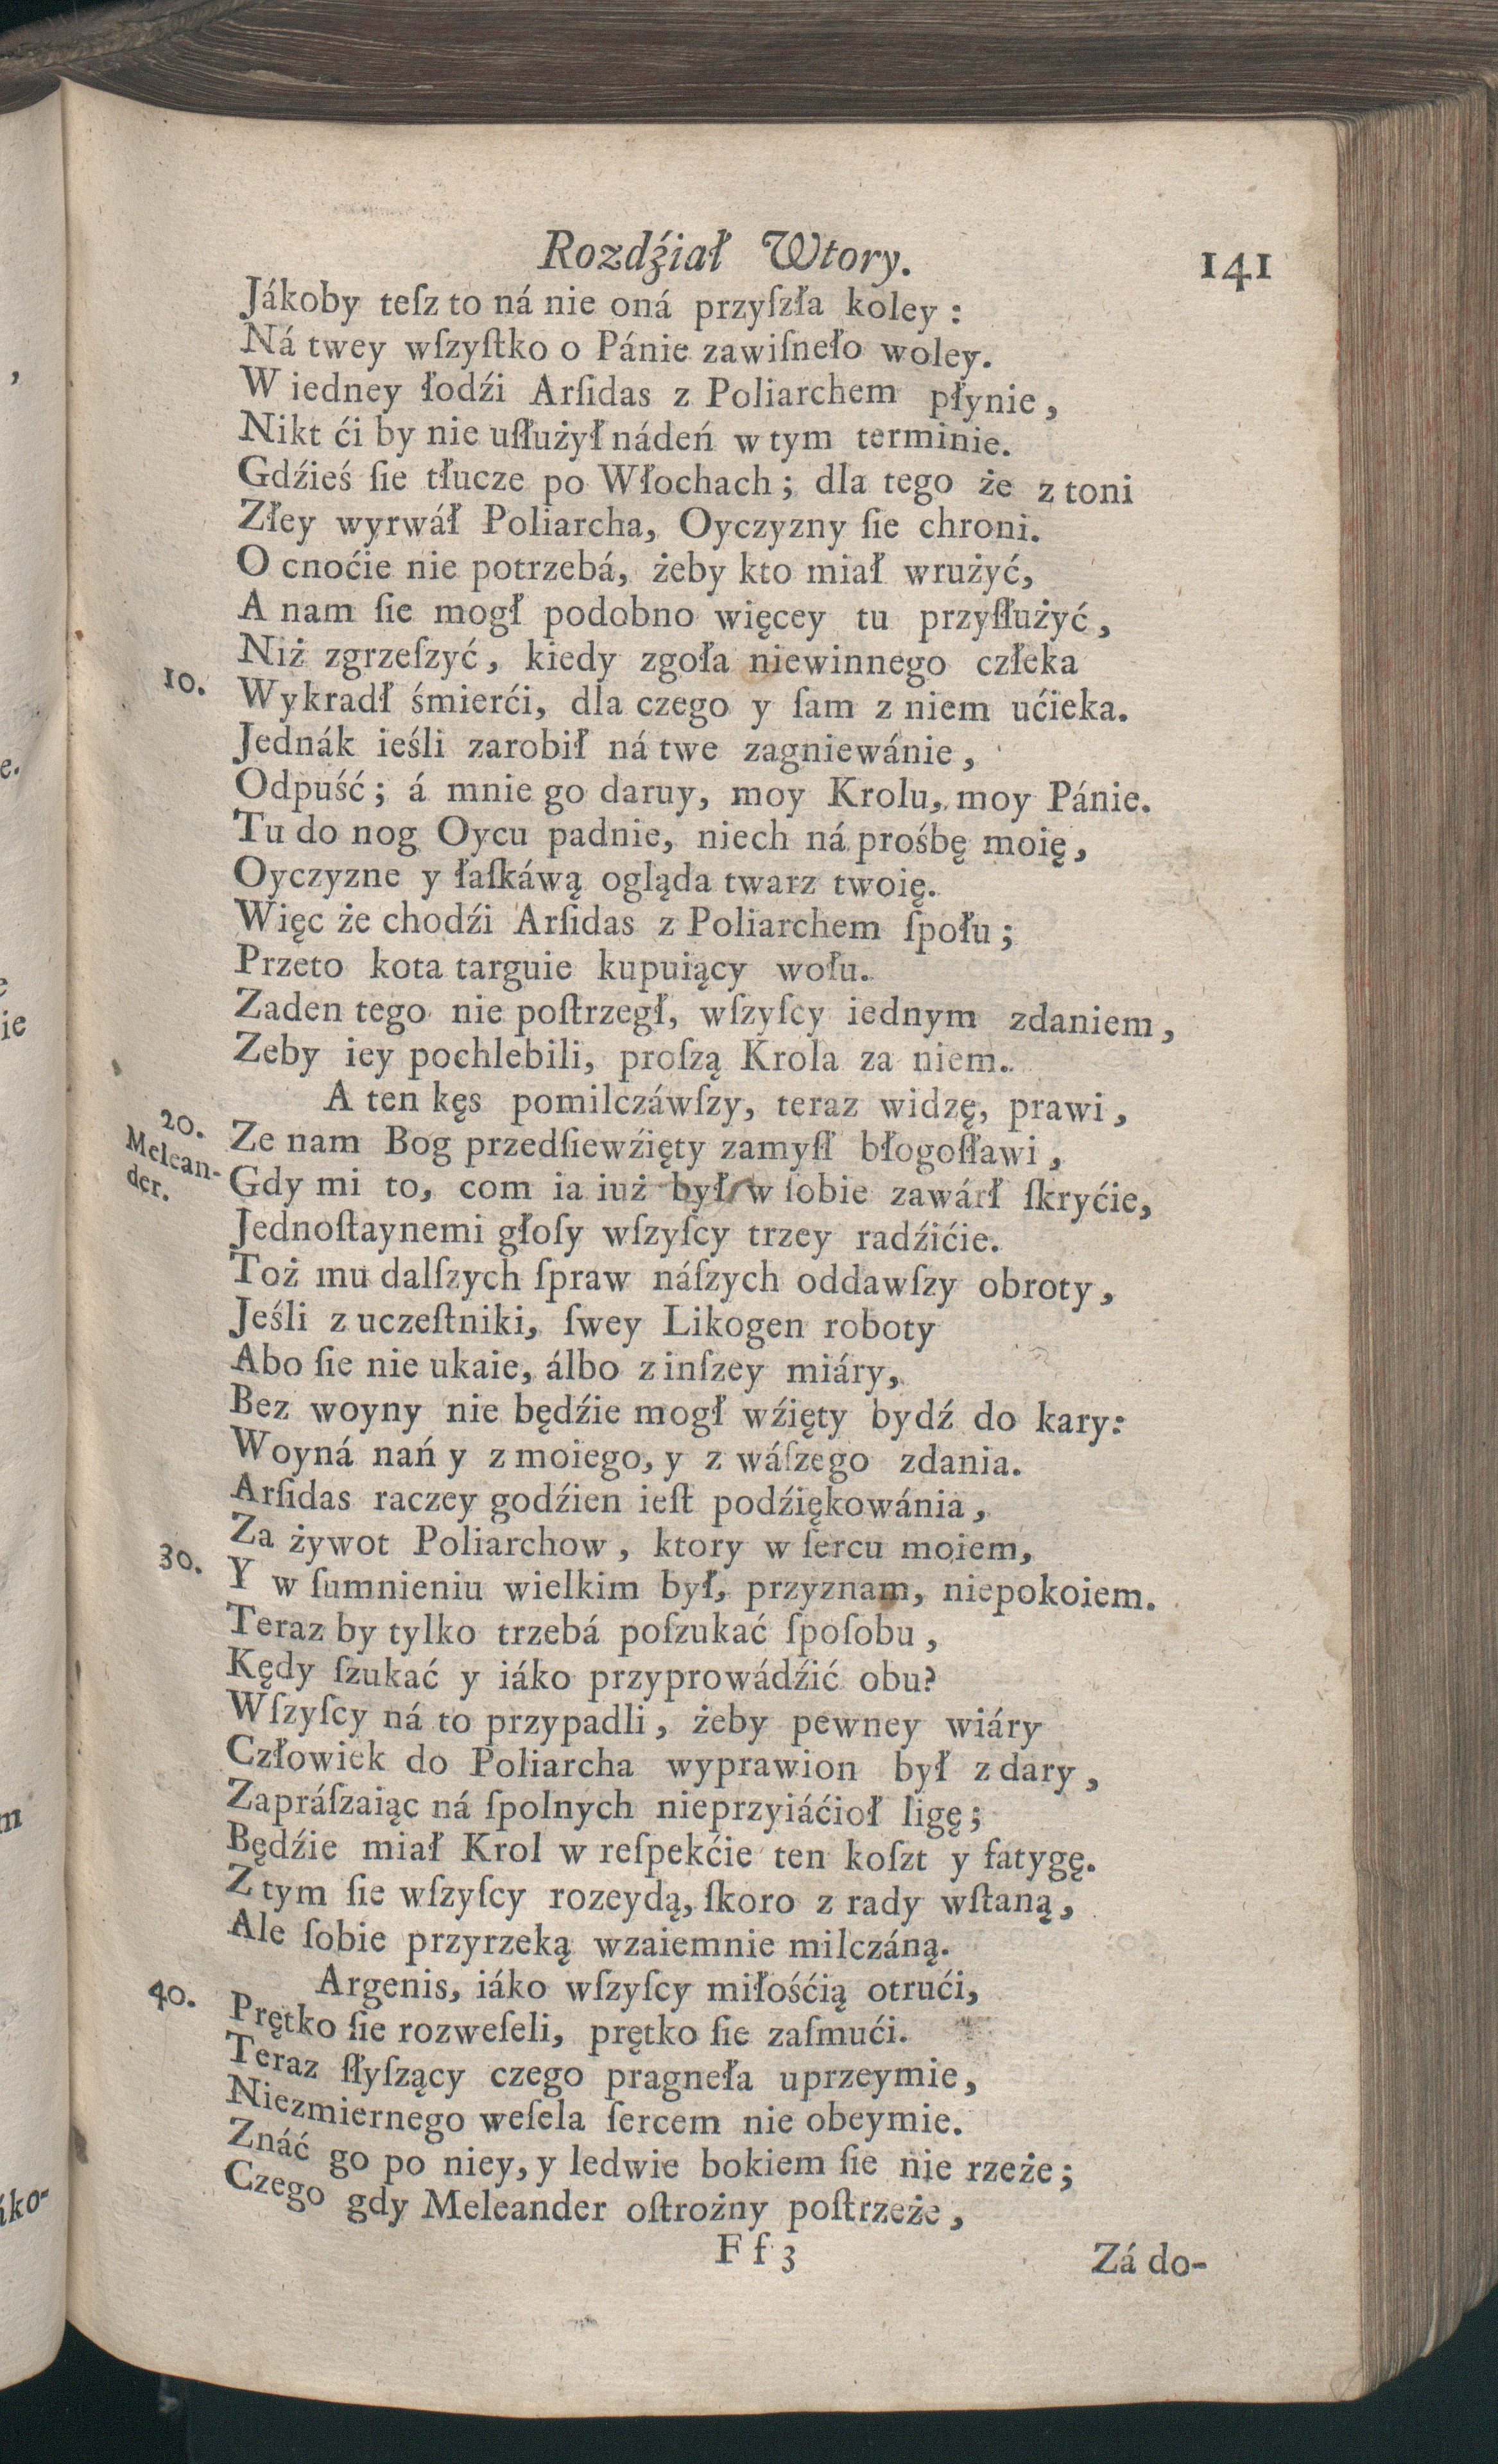 Rozdźiał Wtory. 141
Jákoby teſz to ná nie oná przyſzła koley :
Ná twey wſzyſtko o Pánie zawiſneło woley.
W iedney łodźi Arſidas z Poliarchem płynie ,
Nikt ći by nie uſłużył nádeń w tym terminie.
Gdźieś ſie tłucze po Włochach ; dla tego że z toni
Złey wyrwáł Poliarcha, Oyczyzny ſie chroni.
O cnoćie nie potrzebá, żeby kto miał wrużyć,
A nam ſie mogł podobno więcey tu przyſłużyć ,
Niż zgrzeſzyć , kiedy zgoła niewinnego człeka
10. Wykradł śmierći, dla czego y ſam z niem ućieka.
Jednák ieśli zarobił ná twe zagniewánie ,
Odpuść ; á mnie go daruy, moy Krolu, moy Pánie.
Tu do nog Oycu padnie, niech ná prośbę moię ,
Oyczyzne y łaſkáwą ogląda twarz twoię.
Więc że chodźi Arſidas z Poliarchem ſpołu ;
Przeto kota targuie kupuiący wołu.
Zaden tego nie poſtrzegł, wſzyſcy iednym zdaniem ,
Zeby iey pochlebili, proſzą Krola za niem.
A ten kęs pomilczáwſzy, teraz widzę, prawi ,
20. Ze nam Bog przedſiewźięty zamyſł błogoſławi ,
Melean-
der.
Gdy mi to, com ia iuż był w ſobie zawárł ſkryćie,
Jednoſtaynemi głoſy wſzyſcy trzey radźićie.
Toż mu dalſzych ſpraw náſzych oddawſzy obroty ,
Jeśli z uczeſtniki, ſwey Likogen roboty
Abo ſie nie ukaie, álbo z inſzey miáry,
Bez woyny nie będźie mogł wźięty bydź do kary:
Woyná nań y z moiego, y z wáſzego zdania.
Arſidas raczey godźien ieſt podźiękowánia ,
Za żywot Poliarchow , ktory w ſercu moiem,
30. Y w ſumnieniu wielkim był, przyznam, niepokoiem.
Teraz by tylko trzebá poſzukać ſpoſobu ,
Kędy ſzukać y iáko przyprowádźić obu?
Wſzyſcy ná to przypadli , żeby pewney wiáry
Człowiek do Poliarcha wyprawion był z dary ,
Zapráſzaiąc ná ſpolnych nieprzyiáćioł ligę ;
Będźie miał Krol w reſpekćie ten koſzt y fatygę.
Z tym ſie wſzyſcy rozeydą, ſkoro z rady wſtaną ,
Ale ſobie przyrzeką wzaiemnie milczáną.
Argenis, iáko wſzyſcy miłośćią otrući,
40. Prętko ſie rozweſeli, prętko ſie zaſmući.
Teraz ſłyſzący czego pragneła uprzeymie,
Niezmiernego weſela ſercem nie obeymie.
Znáć go po niey, y ledwie bokiem ſie nie rzeże ;
Czego gdy Meleander oſtrożny poſtrzeże ,
F f 3 Zá do-